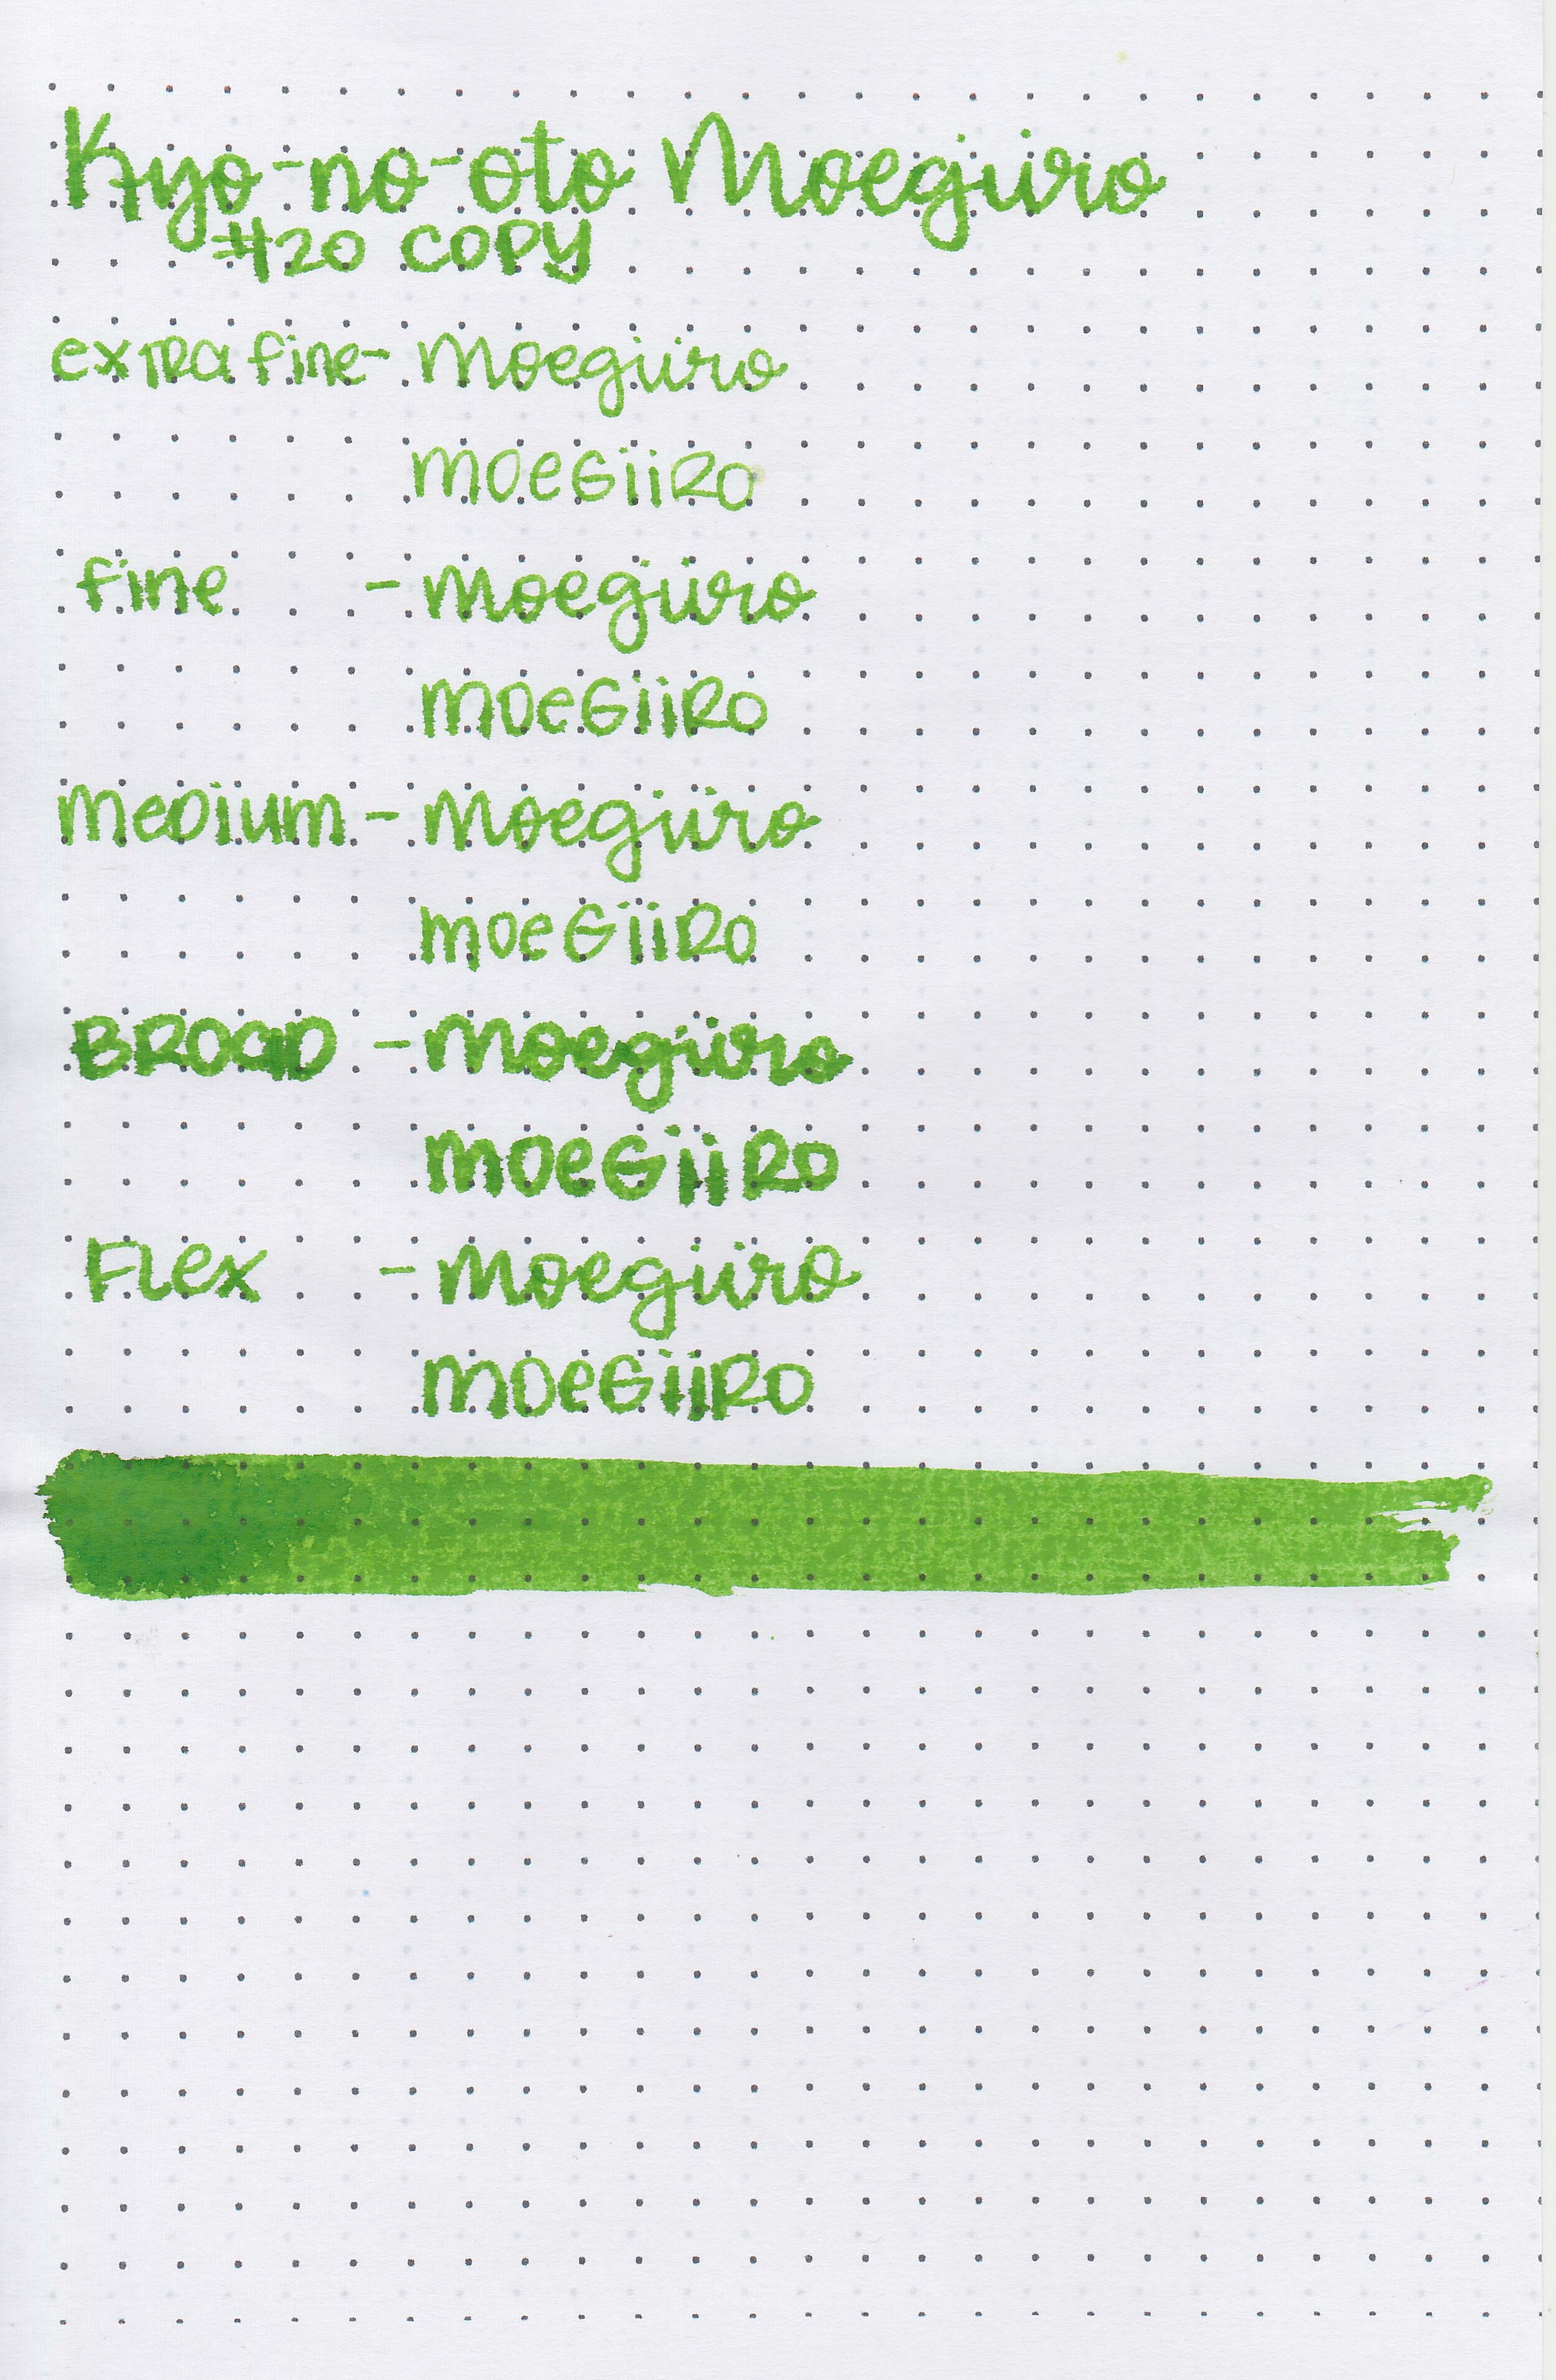 Kyo-no-oto Moegiiro
#20 COPY
extra fine- Moegiiro
MOeGiiRO
fine - Moegiiro
MOeGiiRO
Medium - Moegiiro
MOeGiiRO
BROaD - Moegiiro
MOeGiiRO
FLex - Moegiiro
MOeGiiRO